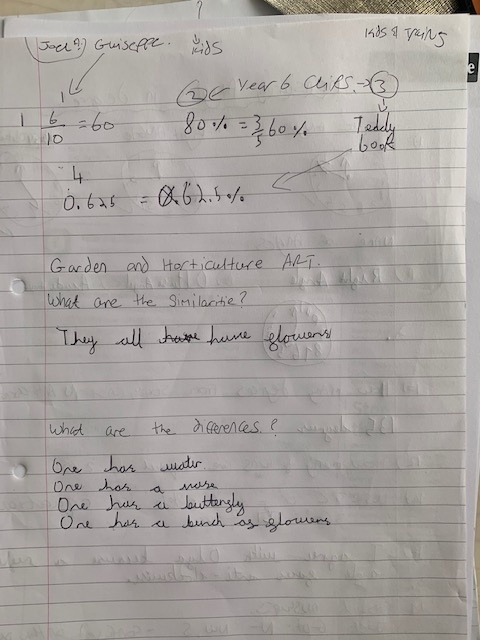 Jack?) Guiseppe.
?
Kids
Kids & Training
1 2 ← Year 6 Chips → 3
1 6/10 = 60 80% = 3/5 60% Teddy
books
4
0.625 = 0.62.5%
Garden and Horticulture ART.
What are the Similaritie?
They all have have flowers
What are the differences?
One has water
One has a vase
One has a butterfly
One has a bunch of flowers